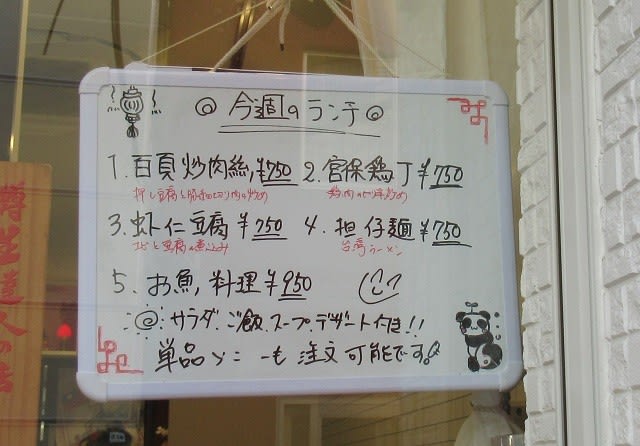 今週のランチ
1. 百頁炒肉絲, ¥750 2. 宮保鶏丁 ¥750
押し豆腐と豚肉の細切り炒め 鶏肉の
3. 虾仁豆腐 ¥750 4. 担仔麺 ¥750
エビと豆腐の煮込み 台湾ラーメン
5. お魚,料理 ¥950
サラダ、ご飯、スープ、デザート付き!!
単品メニーも注文可能です。